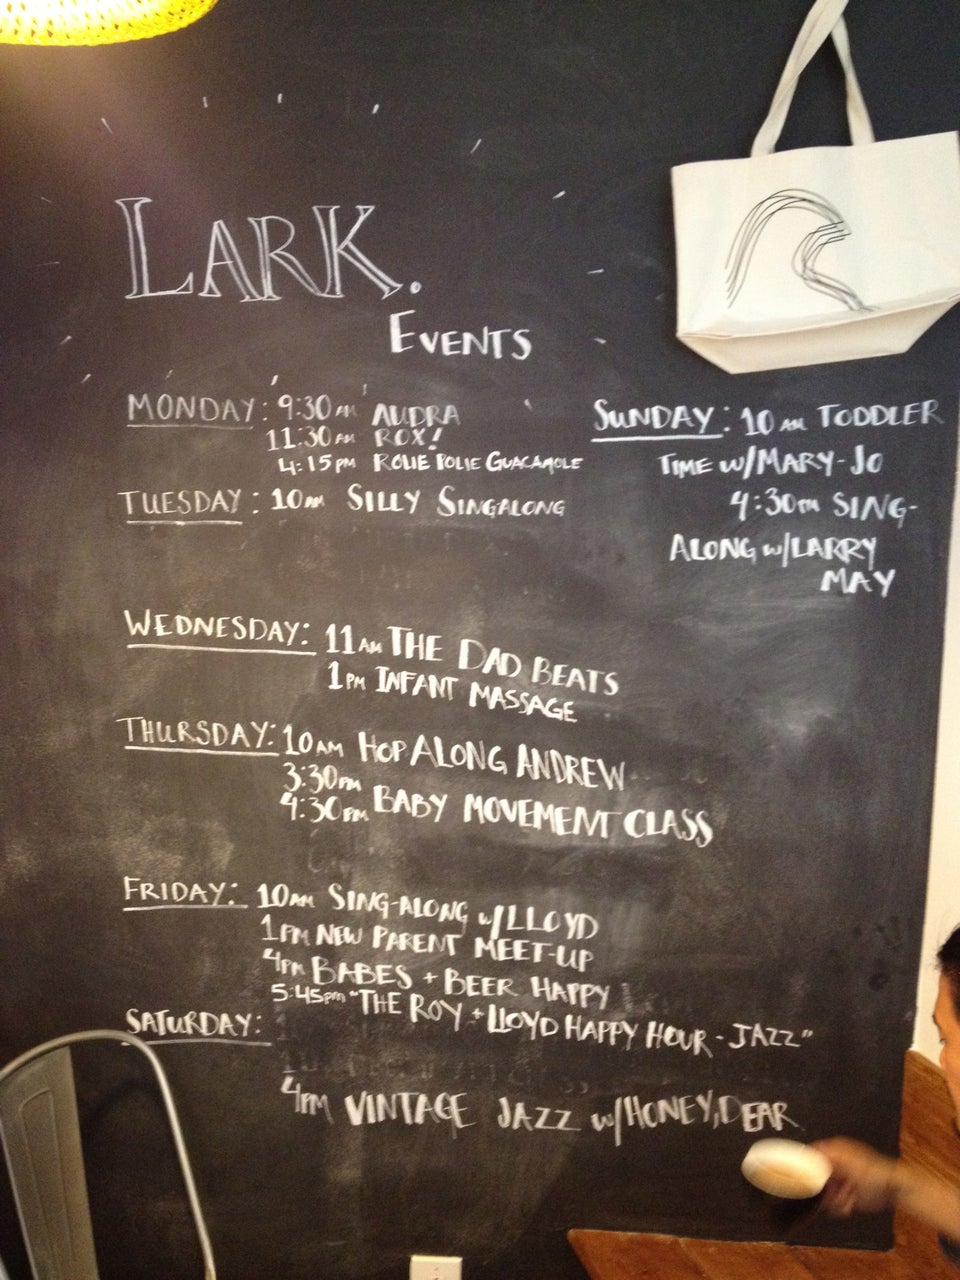 LARK.
EVENTS
MONDAY: 9:30AM AUDRA
11:30AM ROX!
4:15PM ROLIE POLIE GUACAMOLE
TUESDAY: 10AM SILLY SINGALONG
WEDNESDAY: 11AM THE DAD BEATS
1PM INFANT MASSAGE
THURSDAY: 10AM HOP ALONG ANDREW
3:30PM
4:30PM BABY MOVEMENT CLASS
FRIDAY: 10AM SING-ALONG w/LLOYD
1PM NEW PARENT MEET-UP
4PM BABES + BEER HAPPY
5:45pm "THE ROY + LLOYD HAPPY HOUR - JAZZ"
SATURDAY:
4PM VINTAGE JAZZ w/HONEY, DEAR
SUNDAY: 10AM TODDLER
TIME w/MARY-JO
4:30PM SING-
ALONG w/LARRY
MAY